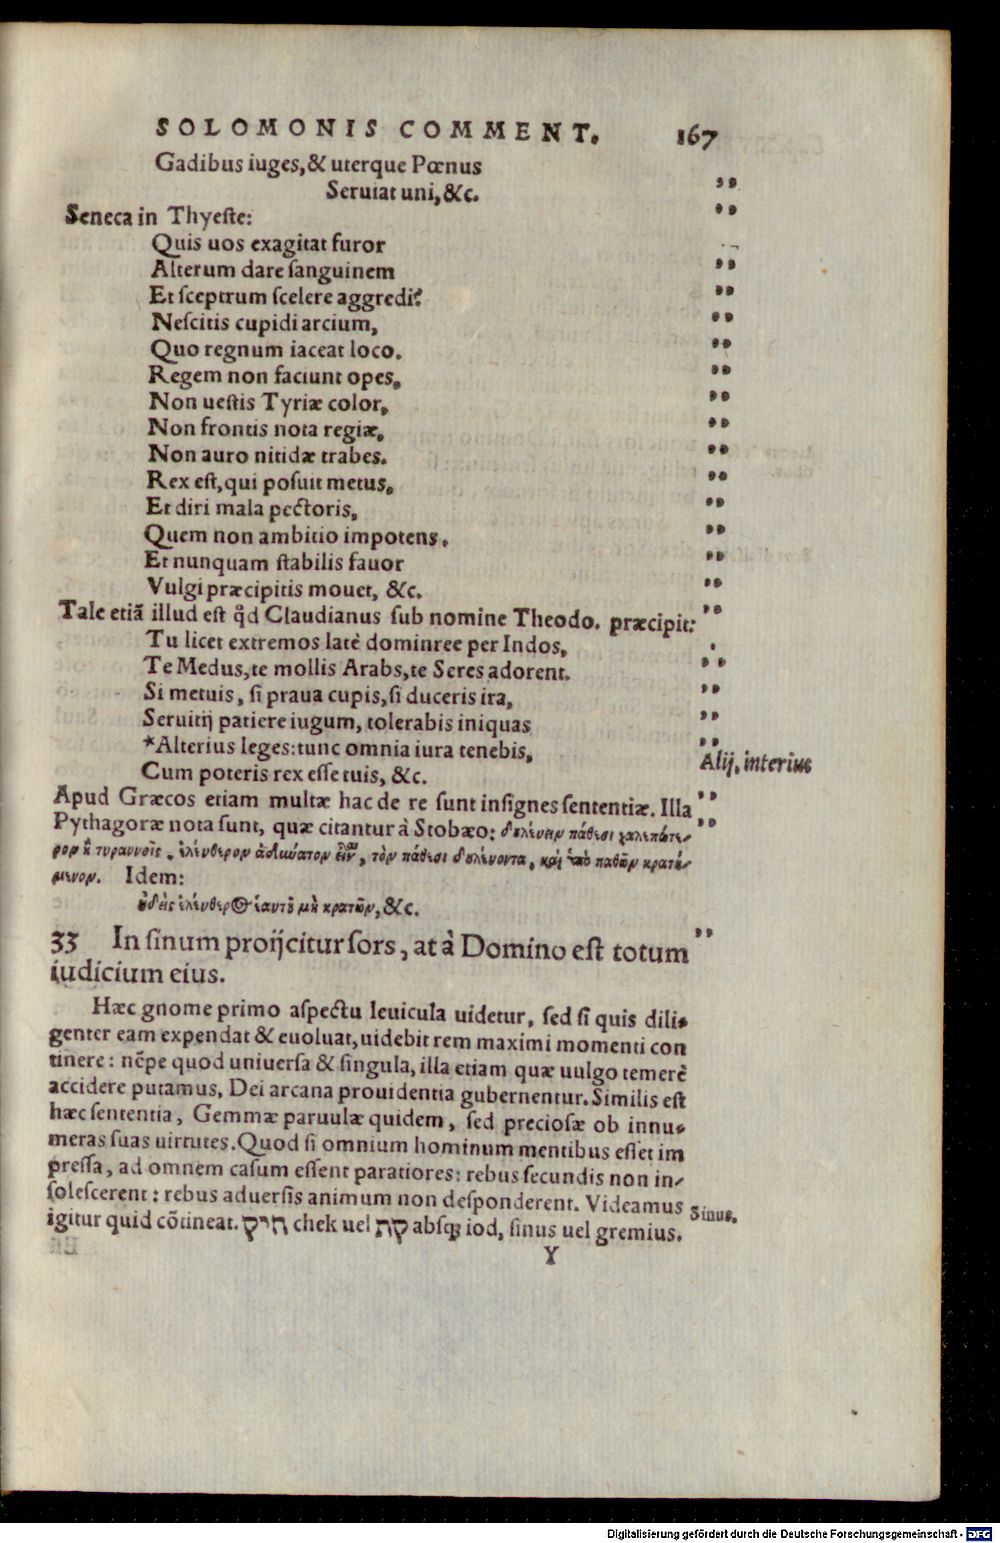 SOLOMONIS COMMENT. 167
Gadibus iuges, & uterque Pœnus
Seruiat uni, &c.
Seneca in Thyeste:
Quis uos exagitat furor
Alterum dare sanguinem
Et sceptrum scelere aggredi?
Nescitis cupidi arcium,
Quo regnum iaceat loco.
Regem non faciunt opes,
Non uestis Tyriæ color,
Non frontis nota regiæ,
Non auro nitidæ trabes.
Rex est, qui posuit metus,
Et diri mala pectoris,
Quem non ambitio impotens,
Et nunquam stabilis fauor
Vulgi præcipitis mouet, &c.
Tale etiã illud est qd̃ Claudianus sub nomine Theodo. præcipit:
Tu licet extremos latè dominree per Indos,
Te Medus, te mollis Arabs, te Seres adorent.
Si metuis, si praua cupis, si duceris ira,
Seruitij patiere iugum, tolerabis iniquas
*Alterius leges: tunc omnia iura tenebis,
Alij, interius
Cum poteris rex esse tuis, &c.
Apud Græcos etiam multæ hac de re sunt insignes sententiæ. Illa
Pythagoræ nota sunt, quæ citantur à Stobæo: δουλεύειν πάθεσι χαλεπώτε-
ρον ἢ τυραννοῖς. ἐλεύθερον ἀδύνατον εἶναι, τὸν πάθεσι δουλεύοντα, καὶ ὑπὸ παθῶν κρατού-
μενον. Idem:
οὐδεὶς ἐλεύθερος ἑαυτοῦ μὴ κρατῶν, &c.
33 In sinum proijcitur sors, at à Domino est totum
iudicium eius.
Hæc gnome primo aspectu leuicula uidetur, sed si quis dili-
genter eam expendat & euoluat, uidebit rem maximi momenti con
tinere: nẽpe quod uniuersa & singula, illa etiam quæ uulgo temerè
accidere putamus, Dei arcana prouidentia gubernentur. Similis est
hæc sententia, Gemmæ paruulæ quidem, sed preciosæ ob innu-
meras suas uirtutes. Quod si omnium hominum mentibus esset im
pressa, ad omnem casum essent paratiores: rebus secundis non in-
solescerent: rebus aduersis animum non desponderent. Videamus
Sinus.
igitur quid cõtineat. חיק chek uel חק absq; iod, sinus uel gremius.
Y
Digitalisierung gefördert durch die Deutsche Forschungsgemeinschaft - DFG